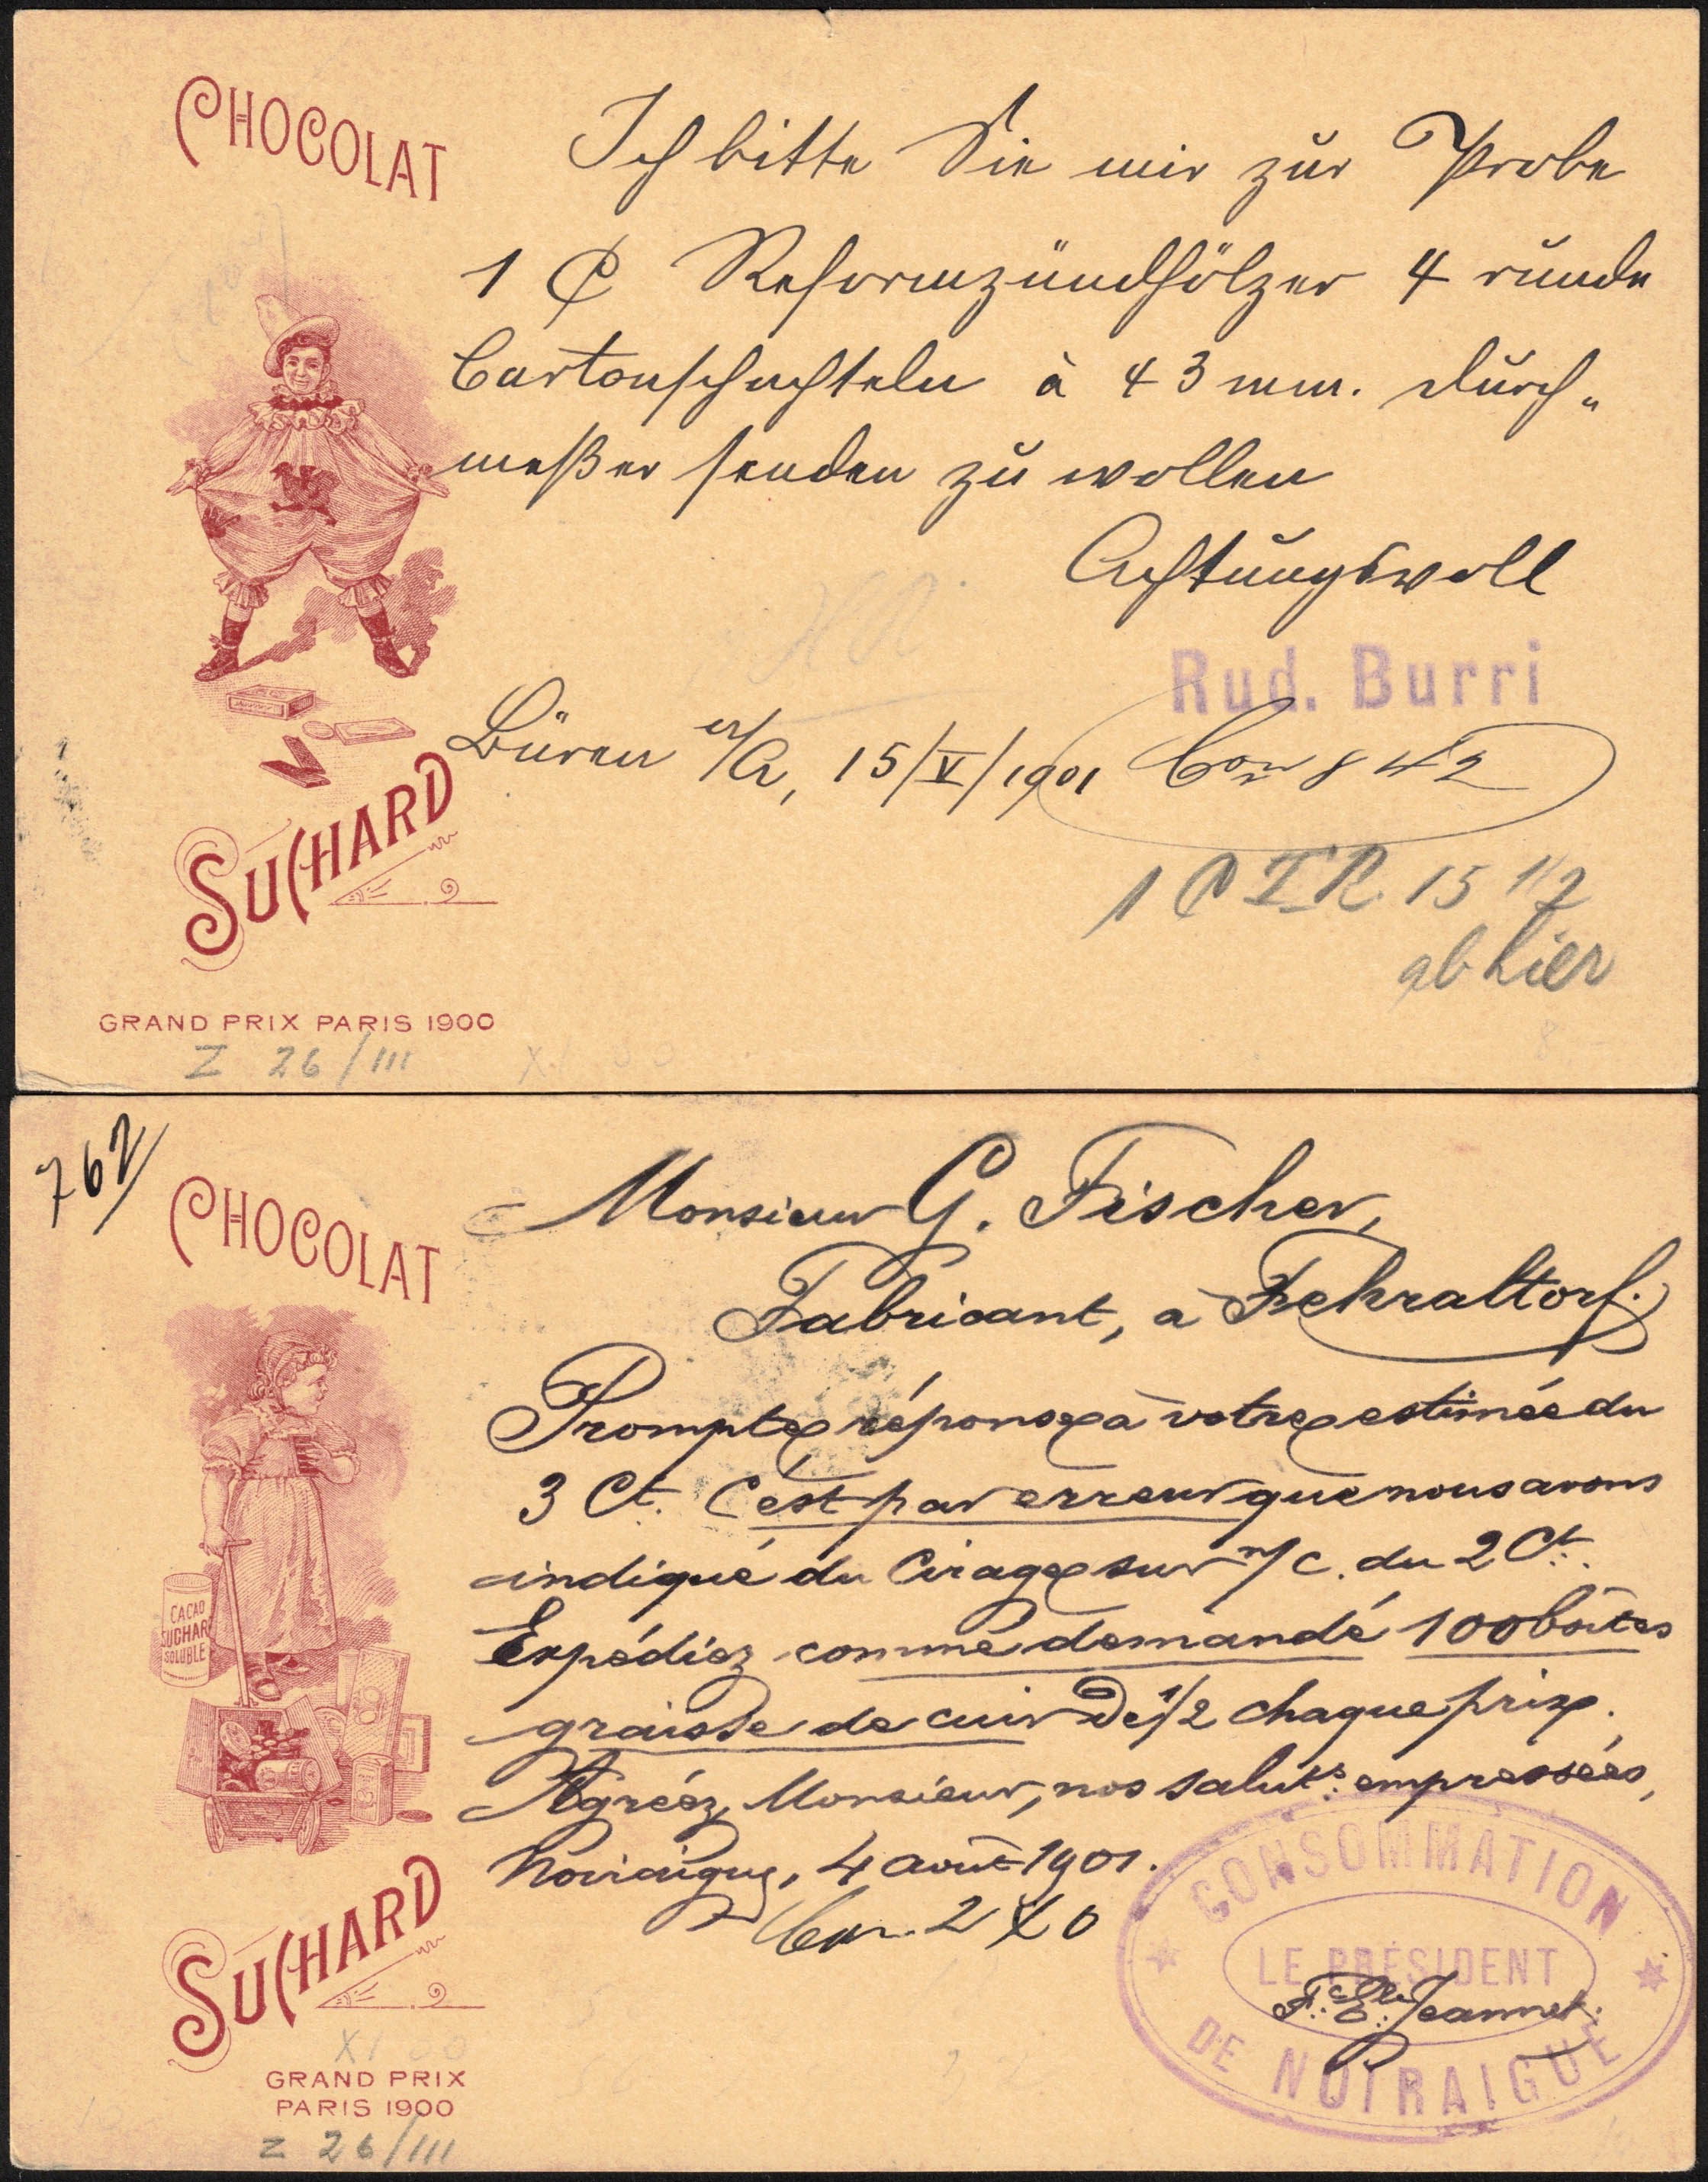 CHOCOLAT
Ich bitte Sie mir zur Probe
1 ₵ Reformzündhölzer 4 runde
Cartonschachteln à 43 mm. Durch„
meßer senden zu wollen
Achtungsvoll
Rud. Burri
Büren a/A, 15/V/1901
842
1 15 1/2
ab hier
SUCHARD
GRAND PRIX PARIS 1900
Z 26/III
762
CHOCOLAT
Monsieur G. Fischer,
Fabricant, à Fehraltorf.
Prompte réponse à votre estimée du
3 Ct. C'est par erreur que nous avons
indiqué du Cirage sur n/c. du 2 Ct.
Expédiez comme demandé 100 boîtes
graisse de cuir De 1/2 chaque prix.
Agréez, Monsieur, nos saluts: empressées,
Noiraigue, 4 août 1901.
CACAO
SUCHARD
SOLUBLE
CONSOMMATION
LE PRÉSIDENT
Jeannet.
DE NOIRAIGUE
SUCHARD
XI 00
GRAND PRIX
PARIS 1900
Z 26/III